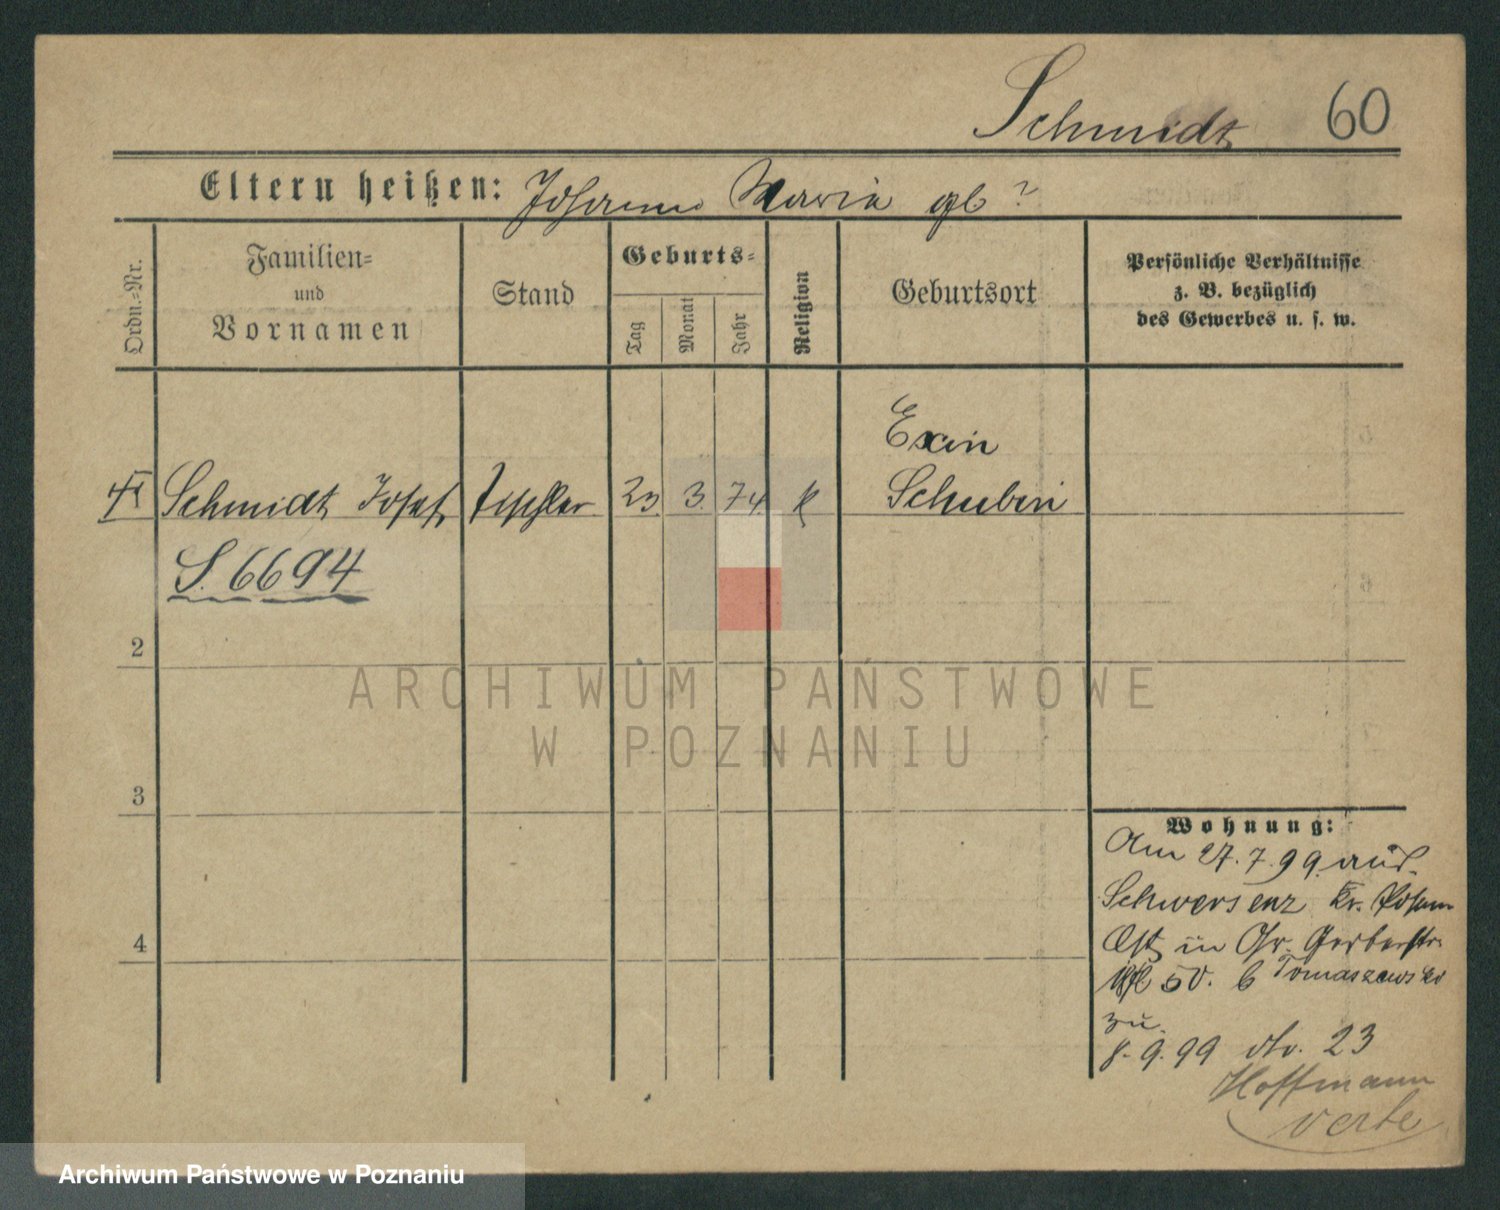 Schmidt 60
Eltern heißen: Johann Maria gb ?
Ordn.=Nr.
Familien=
und
Vornamen
Stand
Geburts=
Tag
Monat
Jahr
Religion
Geburtsort
Persönliche Verhältnisse
z. B. bezüglich
des Gewerbes u. s. w.
Exin
Schmidt Josef Tischler 23 3. 74. k Schubin
S. 6694
2
3
4
Wohnung:
Am 27.7.99 aus
Schwersenz Kr. Posen
Ost in Gr. Gerberstr.
50. b Tomaszewski
zu.
8.9.99 dto. 23
Hoffmann
verte
ARCHIWUM PAŃSTWOWE
W POZNANIU
Archiwum Państwowe w Poznaniu